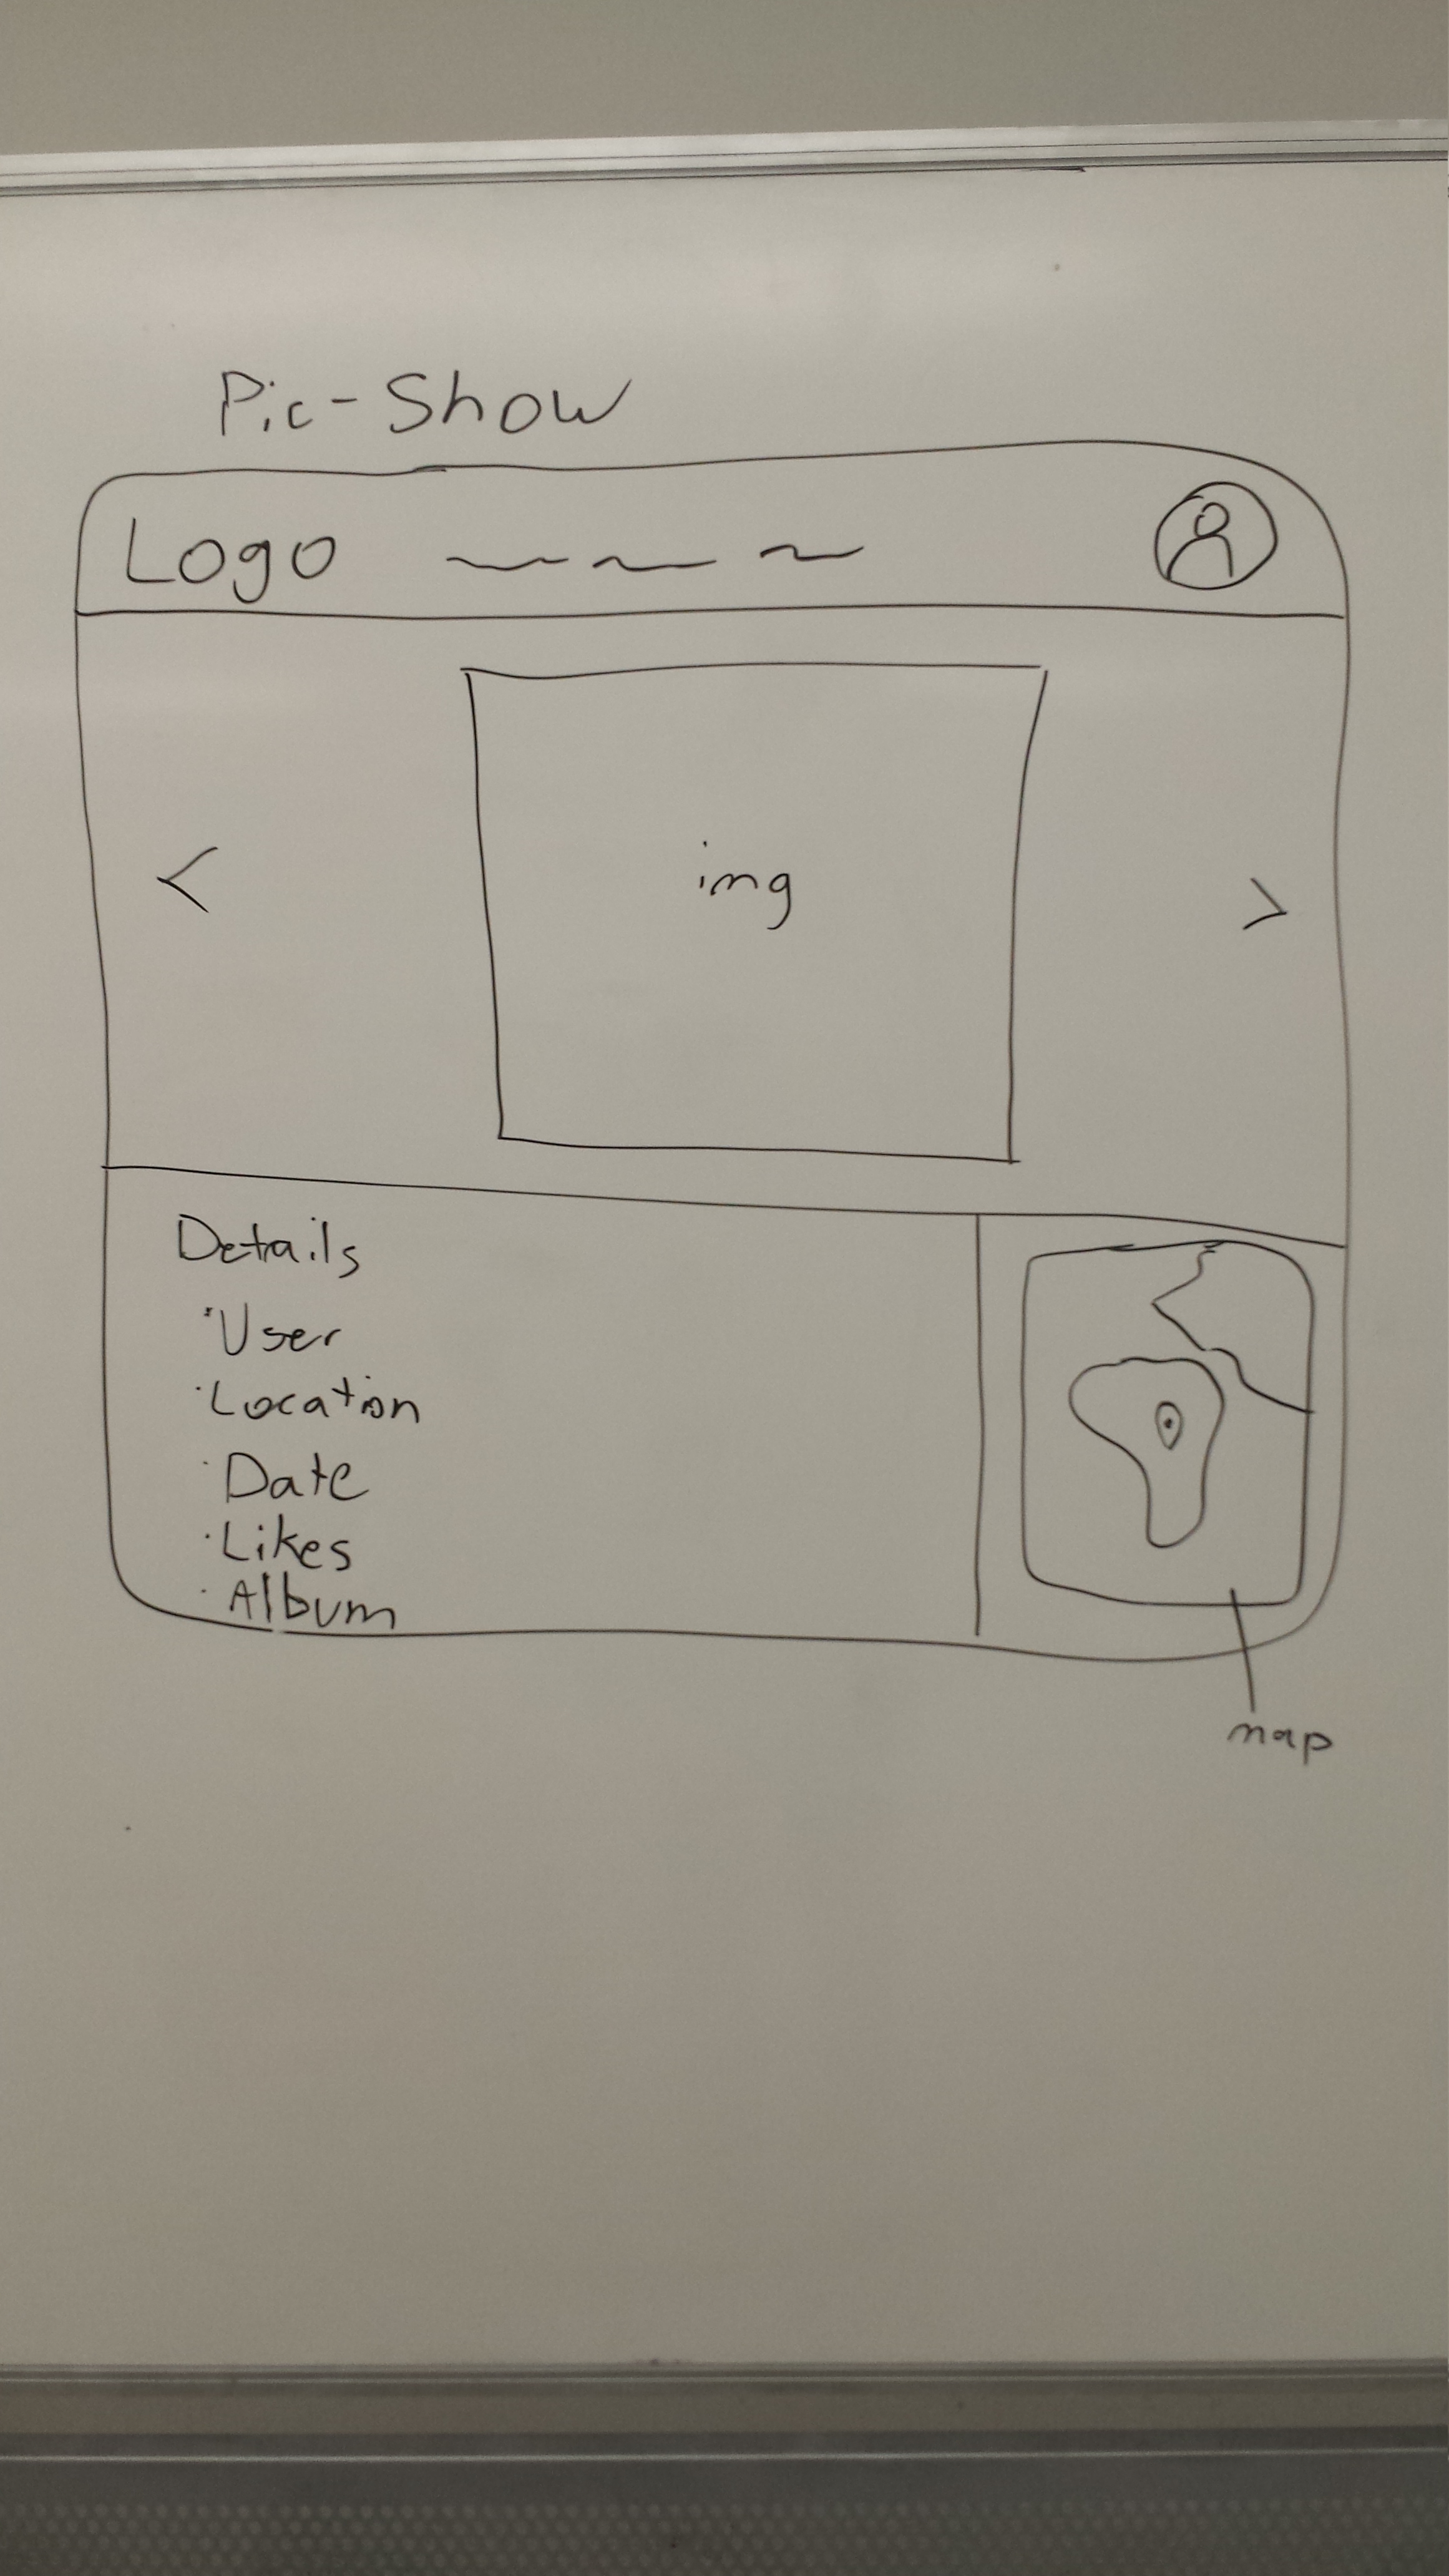 Pic-Show
Logo
<
img
>
Details
·User
·Location
·Date
·Likes
·Album
map